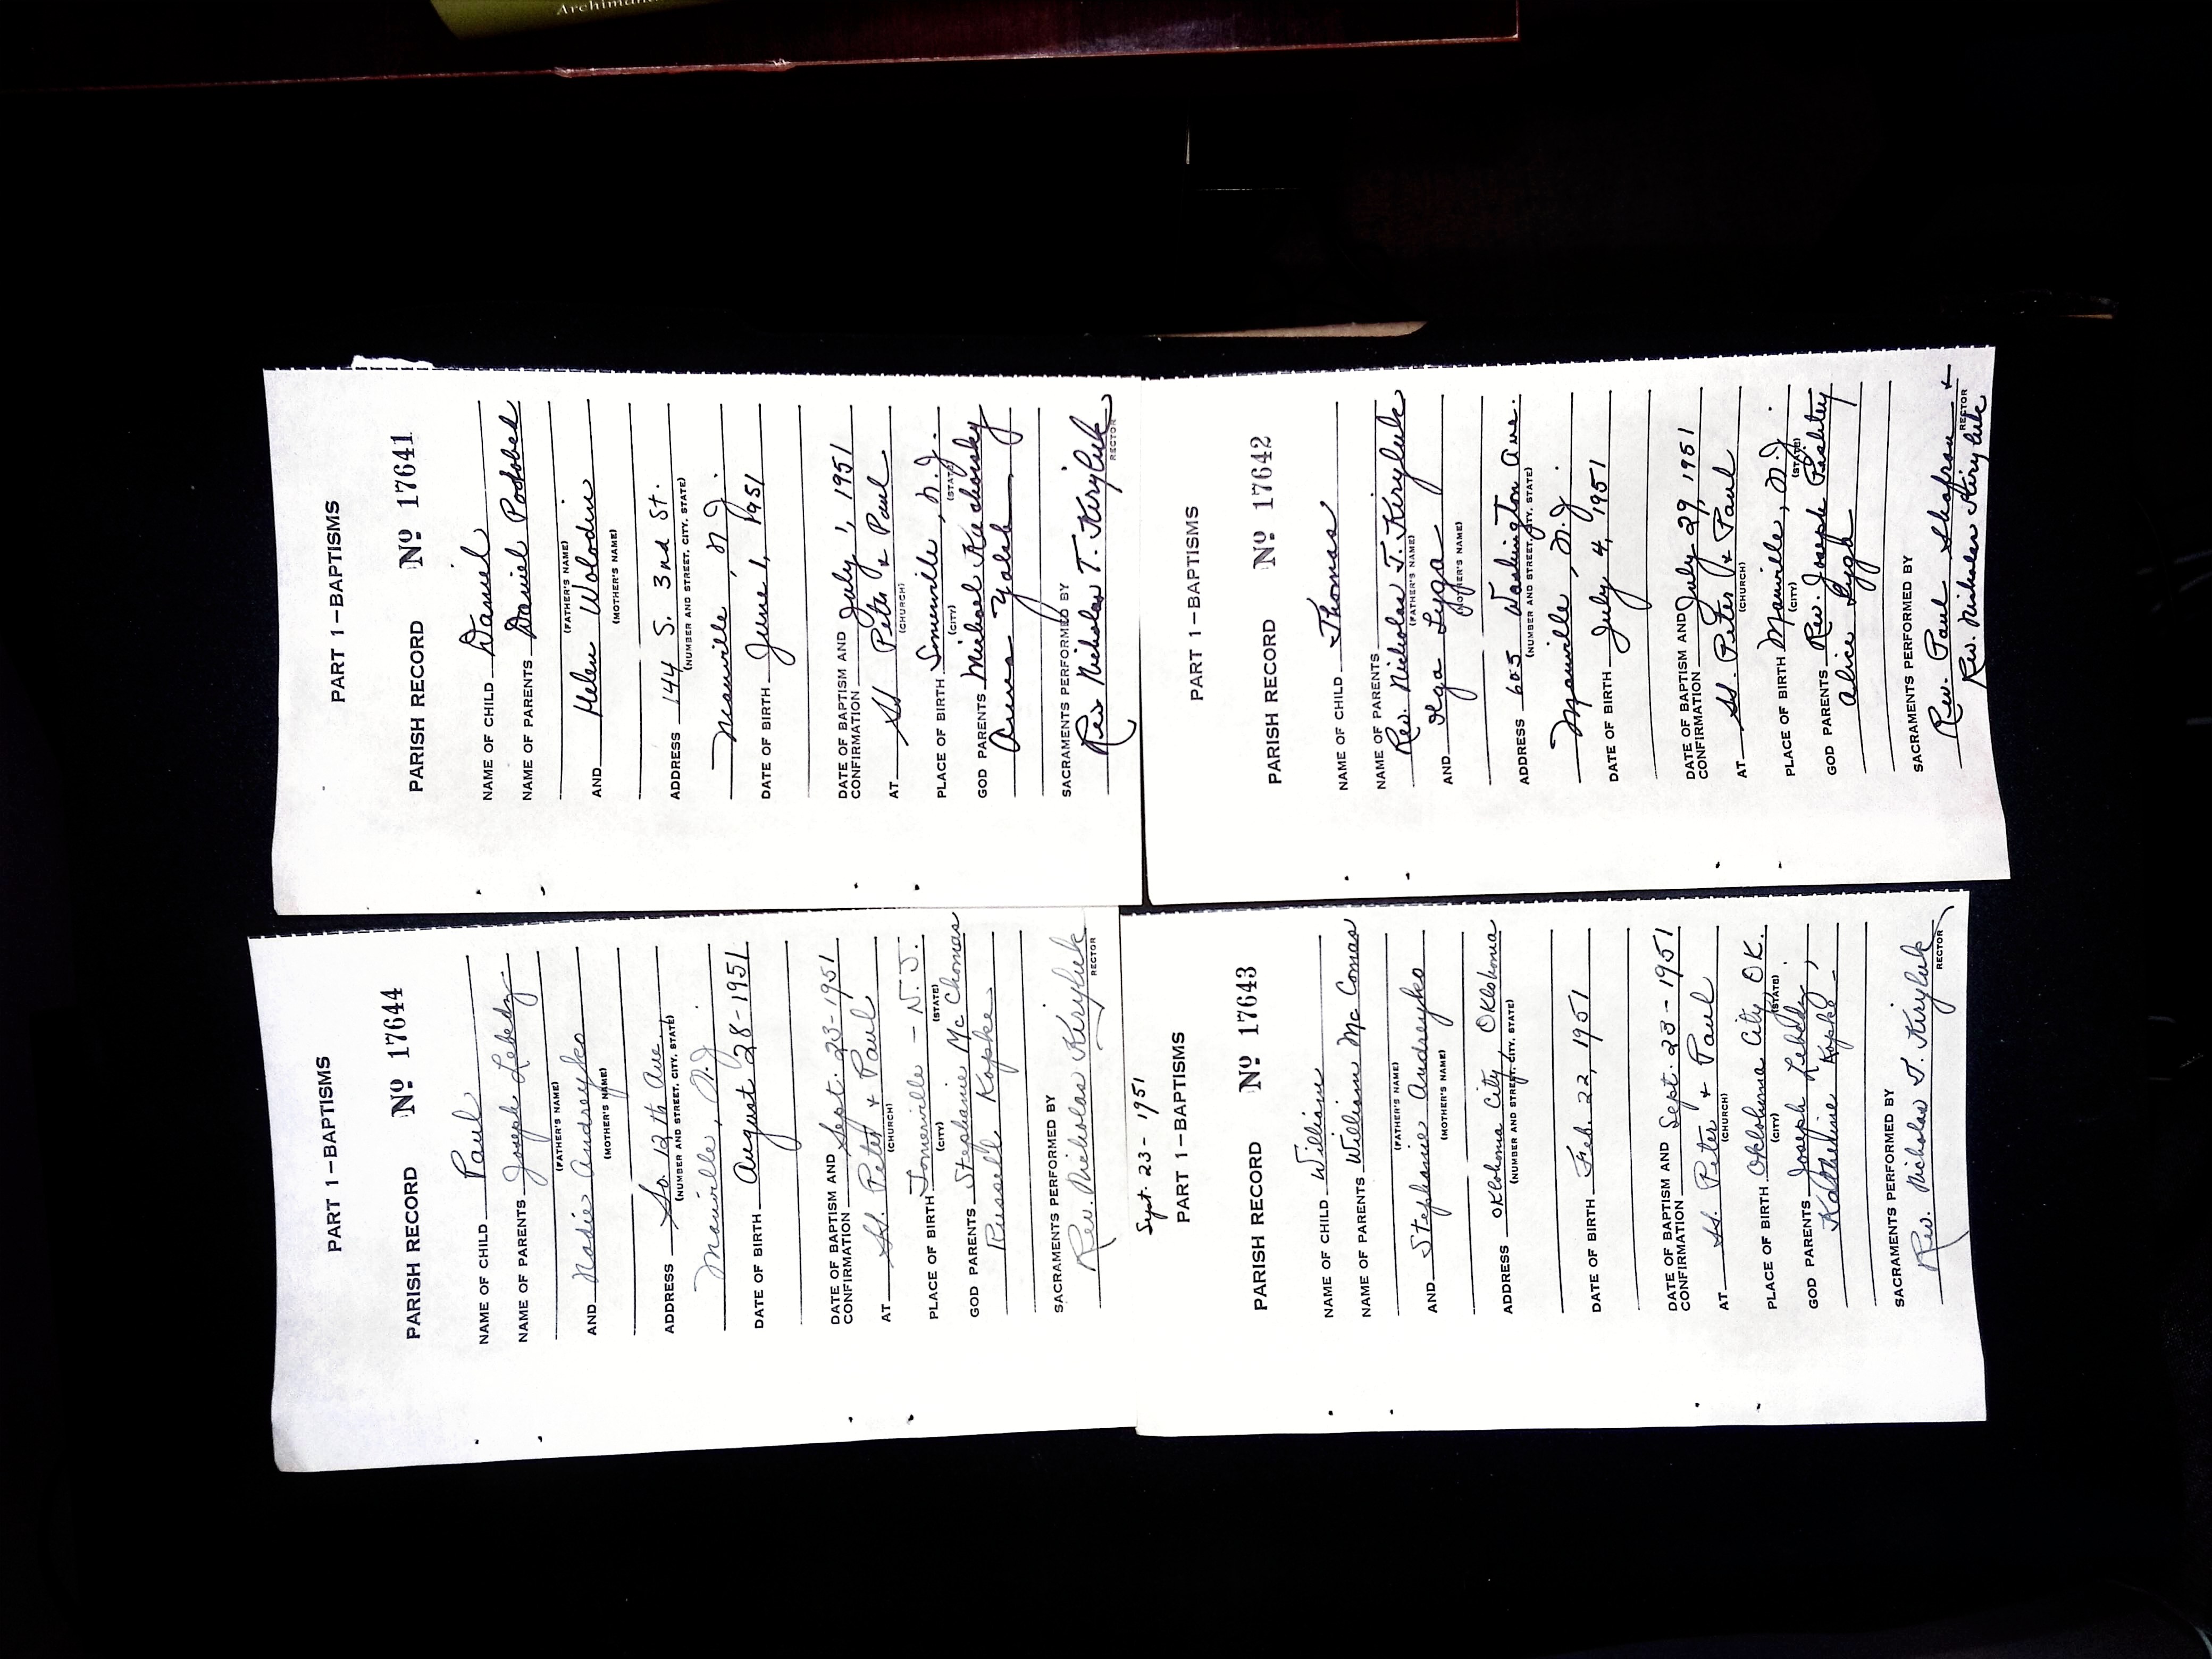 PART 1—BAPTISMS
PARISH RECORD Nº 17644
NAME OF CHILD Paul
NAME OF PARENTS Joseph Lebedz
(FATHER'S NAME)
AND Nadie Andreyko
(MOTHER'S NAME)
ADDRESS So. 12th Ave.
(NUMBER AND STREET, CITY, STATE)
Manville, N.J.
DATE OF BIRTH August 28-1951
DATE OF BAPTISM AND
CONFIRMATION Sept. 23-1951
AT SS. Peter & Paul
(CHURCH)
PLACE OF BIRTH Somerville - N.J.
(CITY) (STATE)
GOD PARENTS Stephanie McChomas
Russell Kopke
SACRAMENTS PERFORMED BY
Rev. Nicholas Kiryluk
RECTOR
PART 1—BAPTISMS
PARISH RECORD Nº 17641
NAME OF CHILD Daniel
NAME OF PARENTS Daniel Podobed
(FATHER'S NAME)
AND Helen Wolodin
(MOTHER'S NAME)
ADDRESS 144 S. 3nd St.
(NUMBER AND STREET, CITY, STATE)
Manville, N.J.
DATE OF BIRTH June 1, 1951
DATE OF BAPTISM AND
CONFIRMATION July 1, 1951
AT SS Peter & Paul
(CHURCH)
PLACE OF BIRTH Somerville, N.J.
(CITY) (STATE)
GOD PARENTS Michael
Anna
SACRAMENTS PERFORMED BY
Rev Nicholas T. Kiryluk
RECTOR
Sept. 23- 1951
PART 1—BAPTISMS
PARISH RECORD Nº 17643
NAME OF CHILD William
NAME OF PARENTS William McComas
(FATHER'S NAME)
AND Stephanie Andreyko
(MOTHER'S NAME)
ADDRESS Oklohoma City, Oklohoma
(NUMBER AND STREET, CITY, STATE)
DATE OF BIRTH Feb. 22, 1951
DATE OF BAPTISM AND
CONFIRMATION Sept. 23-1951
AT SS. Peter & Paul
(CHURCH)
PLACE OF BIRTH Oklohoma City, OK.
(CITY) (STATE)
GOD PARENTS Joseph Lebedz,
Katherine Kopke -
SACRAMENTS PERFORMED BY
Rev. Nicholas T. Kiryluk
RECTOR
PART 1—BAPTISMS
PARISH RECORD Nº 17642
NAME OF CHILD Thomas
NAME OF PARENTS
Rev. Nicholas T. Kiryluk
(FATHER'S NAME)
AND Olga Lyga
(MOTHER'S NAME)
ADDRESS 605 Washington Ave.
(NUMBER AND STREET, CITY, STATE)
Manville, N.J.
DATE OF BIRTH July 4, 1951
DATE OF BAPTISM AND
CONFIRMATION July 29, 1951
AT SS. Peter & Paul
(CHURCH)
PLACE OF BIRTH Manville, N.J.
(CITY) (STATE)
GOD PARENTS Rev. Joseph Pishtey
Alice Lyga
SACRAMENTS PERFORMED BY
Rev. Paul Shafran &
RECTOR
Rev. Nicholas Kiryluk